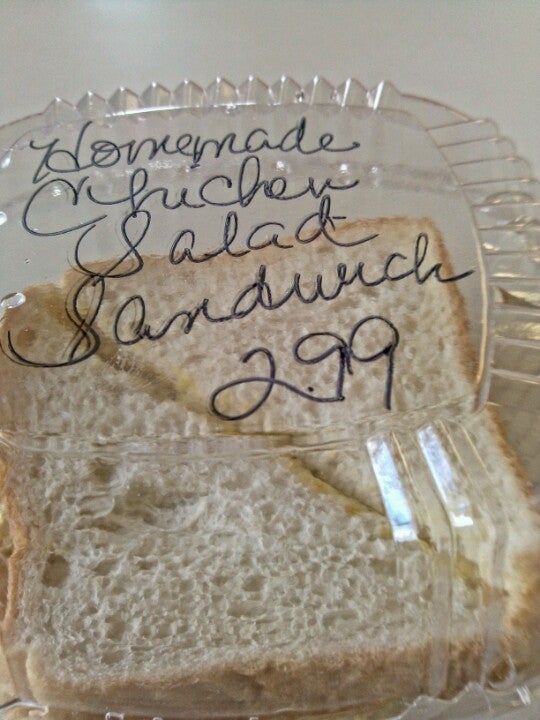 Homemade
Chicken
Salad
Sandwich
2.99